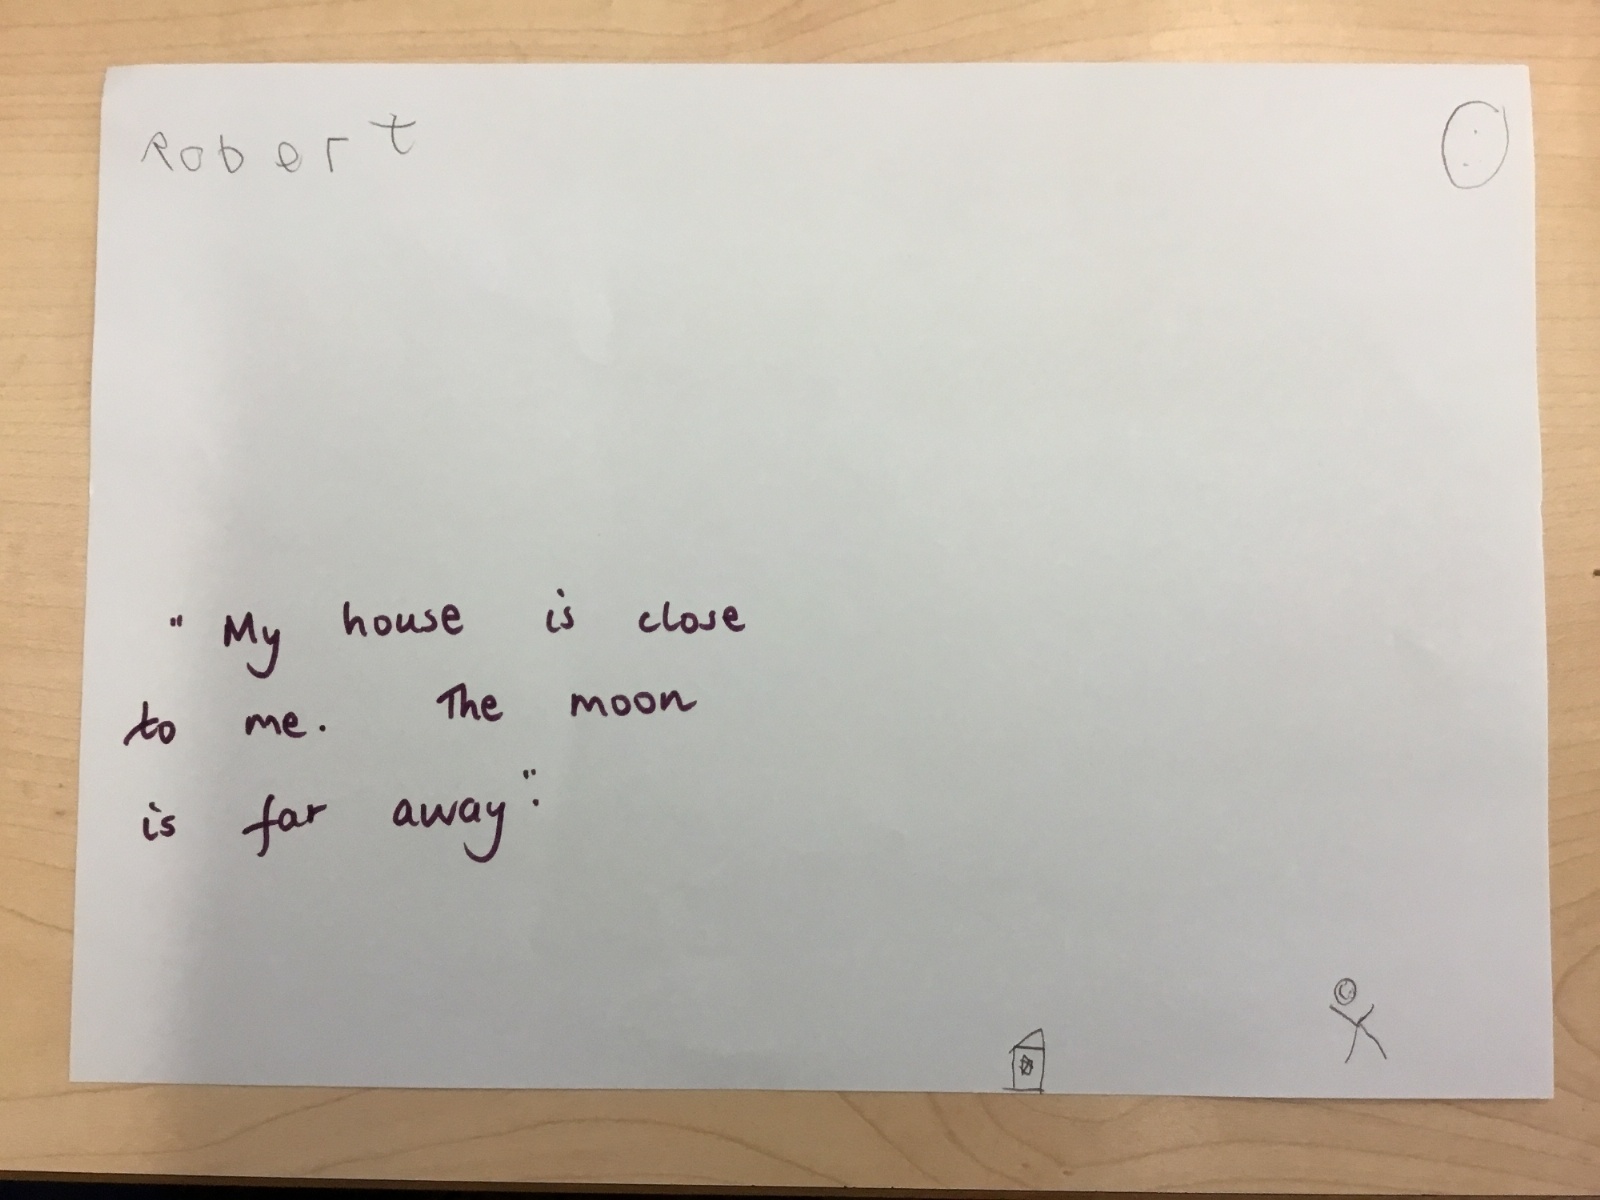 Robert
" My house is close
to me. The moon
is far away".